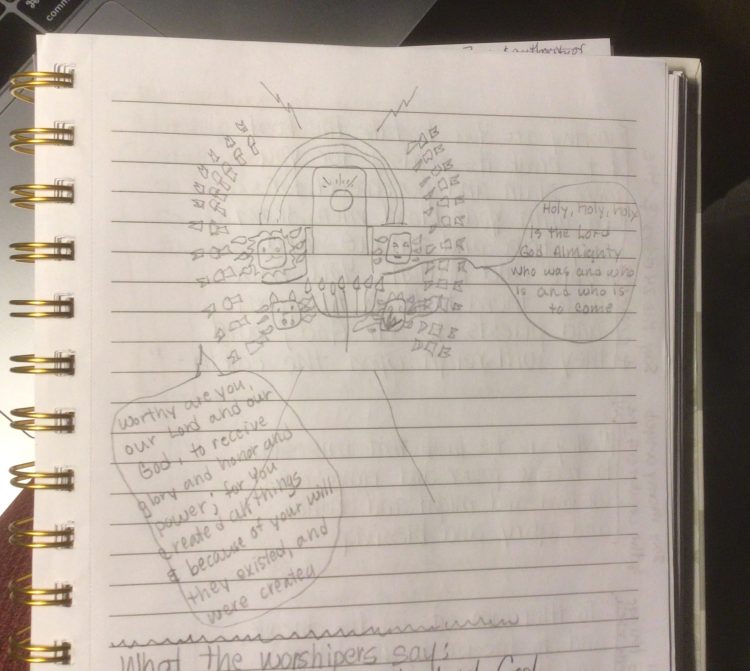 comm
authority of
Holy, holy, holy
is the Lord
God Almighty
who was and who
is and who is
to come
Worthy are you,
our Lord and our
God, to receive
glory and honor and
power; for you
created all things
because of your will
they existed, and
were created
What the worshipers say:
God